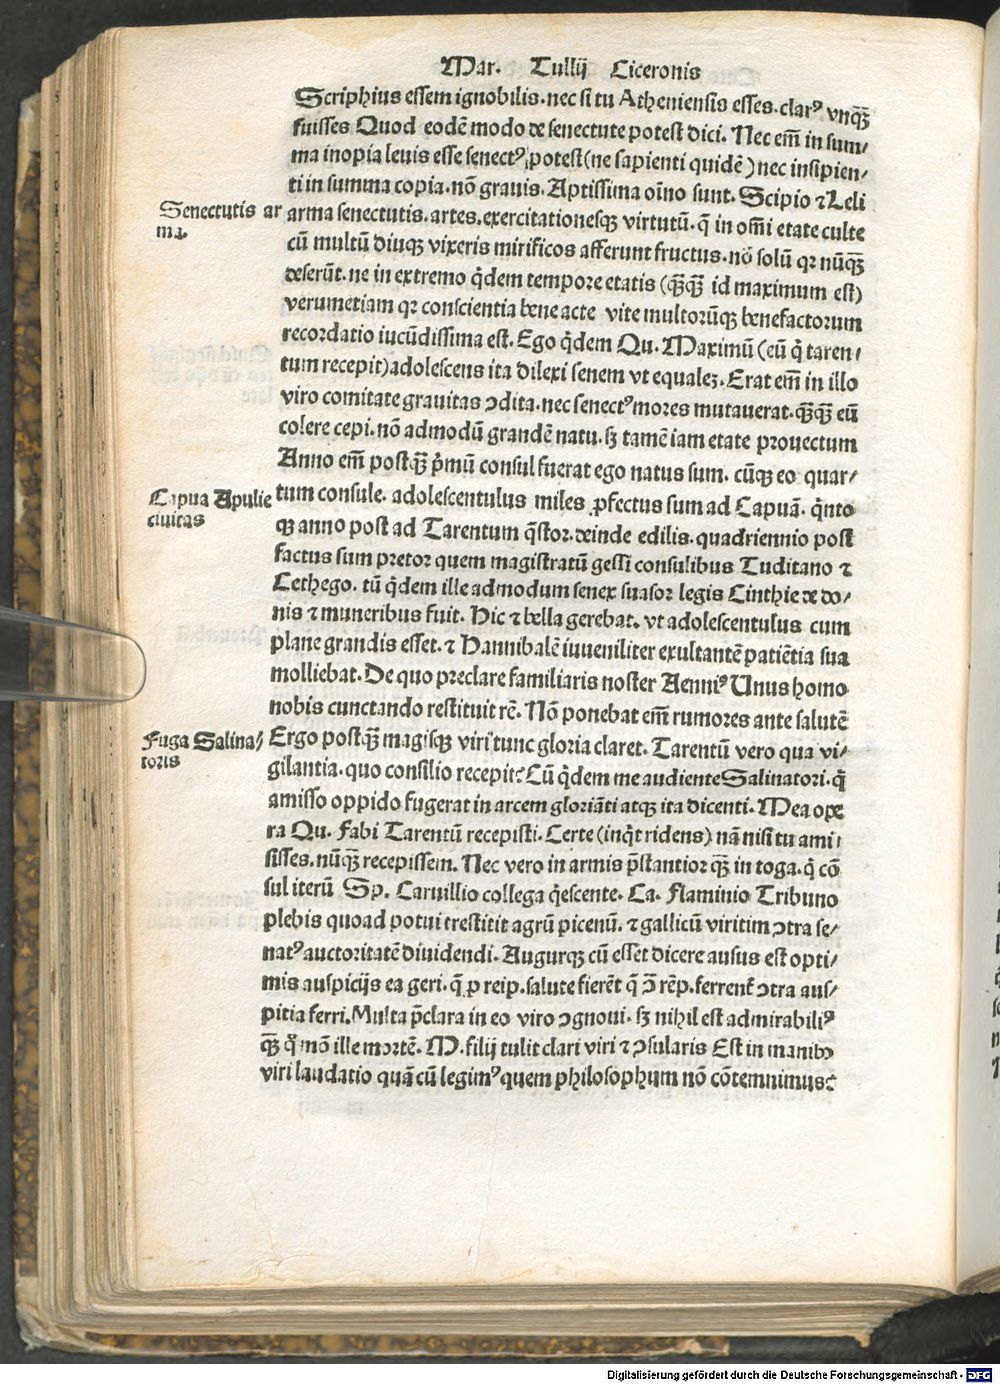 Mar. Tullij Ciceronis
Scriphius essem ignobilis. nec si tu Atheniensis esses. clarꝰ vnqꝫ̄
fuisses Quod eodē modo de senectute potest dici. Nec em̄ in sum/
ma inopia leuis esse senectꝰ potest (ne sapienti quidē) nec insipien/
ti in summa copia. nō grauis. Aptissima oīno sunt. Scipio ⁊ Leli
Senectutis ar
ma.
arma senectutis. artes. exercitationesqꝫ virtutū. q̄ in om̄i etate culte
cū multū diuqꝫ vixeris mirificos afferunt fructus. nō solū qꝛ nūqꝫ̄
deserūt. ne in extremo q̇dem tempore etatis (qꝫ̄qꝫ̄ id maximum est)
verumetiam qꝛ conscientia bene acte vite multorūqꝫ benefactorum
recordatio iucūdissima est. Ego q̇dem Qu. Maximū (eū q̇ taren/
tum recepit) adolescens ita dilexi senem vt equaleꝫ. Erat em̄ in illo
viro comitate grauitas ↄdita. nec senectꝰ mores mutauerat. qꝫ̄qꝫ̄ eū
colere cepi. nō admodū grandē natu. sꝫ tamē iam etate prouectum
Anno em̄ postqꝫ̄ ṗmū consul fuerat ego natus sum. cūqꝫ eo quar/
Capua Apulie
ciuitas
tum consule. adolescentulus miles ꝓfectus sum ad Capuā. q̇nto
qꝫ anno post ad Tarentum q̄stor. deinde edilis. quadriennio post
factus sum pretor quem magistratū gessi consulibus Tuditano ⁊
Cethego. tū q̇dem ille admodum senex suasor legis Cinthie de do/
nis ⁊ muneribus fuit. Hic ⁊ bella gerebat. vt adolescentulus cum
plane grandis esset. ⁊ Hannibalē iuueniliter exultantē patiētia sua
molliebat. De quo preclare familiaris noster Aenniꝰ Unus homo
nobis cunctando restituit rē. Nō ponebat em̄ rumores ante salutē
Fuga Salina/
toris
Ergo postqꝫ̄ magisqꝫ viri tunc gloria claret. Tarentū vero qua vi/
gilantia. quo consilio recepit? Cū q̇dem me audiente Salinatori. q̇
amisso oppido fugerat in arcem gloriāti atqꝫ ita dicenti. Mea ope
ra Qu. Fabi Tarentū recepisti. Certe (inq̇t ridens) nā nisi tu ami/
sisses. nūqꝫ̄ recepissem. Nec vero in armis p̄stantior qꝫ̄ in toga. q̇ cō
sul iterū Sp. Caruillio collega q̇escente. Ca. Flaminio Tribuno
plebis quoad potui trestitit agrū picenū. ⁊ gallicū viritim ↄtra se/
natꝰ auctoritatē diuidendi. Augurqꝫ cū esset dicere ausus est opti/
mis auspicijs ea geri. q̄ ꝓ reip. salute fierēt q̄ ↄ̄ rēp. ferrent̄ ↄtra aus/
pitia ferri. Multa p̄clara in eo viro ↄgnoui. sꝫ nihil est admirabiliꝰ
qꝫ̄ q̊mō ille mortē. M. filij tulit clari viri ⁊ ↄsularis Est in manibꝰ
viri laudatio quā cū legimꝰ quem philosophum nō cōtemnimus?
Digitalisierung gefördert durch die Deutsche Forschungsgemeinschaft - DFG